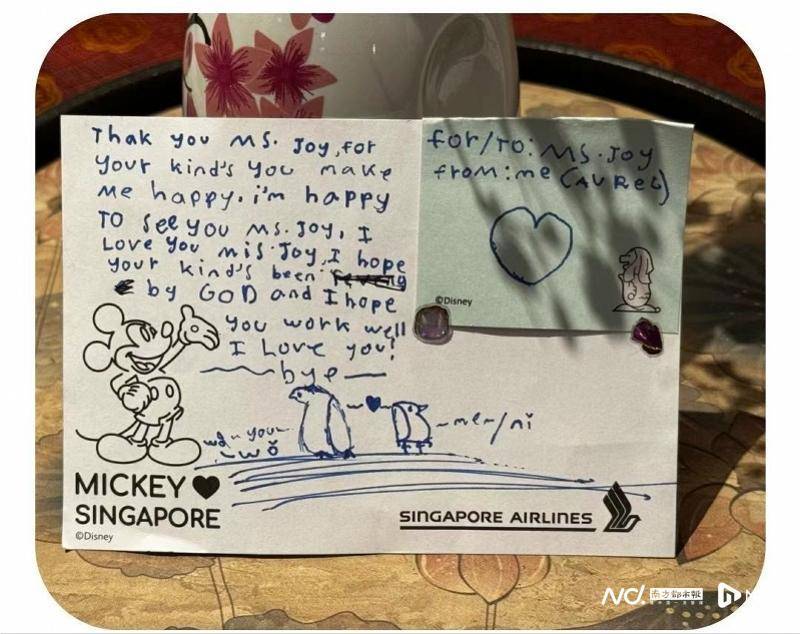 Thak you Ms. Joy, for
your kind's you make
me happy. i'm happy
TO see you Ms. Joy, I
Love you mis Joy, I hope
your kind's been
by GOD and I hope
you work well
I Love you!
bye
you
wǒ
me/ni
MICKEY
SINGAPORE
©Disney
for/TO: Ms. Joy
from: me (AUREL)
©Disney
SINGAPORE AIRLINES
南方都市报
N